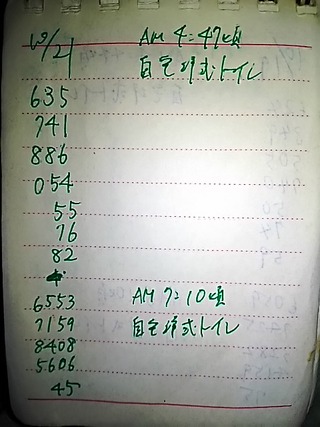 10/21 AM 4:47頃
自宅洋式トイレ
635
741
886
054
55
76
82
6553 AM 7:10頃
7159 自宅洋式トイレ
8408
5606
45